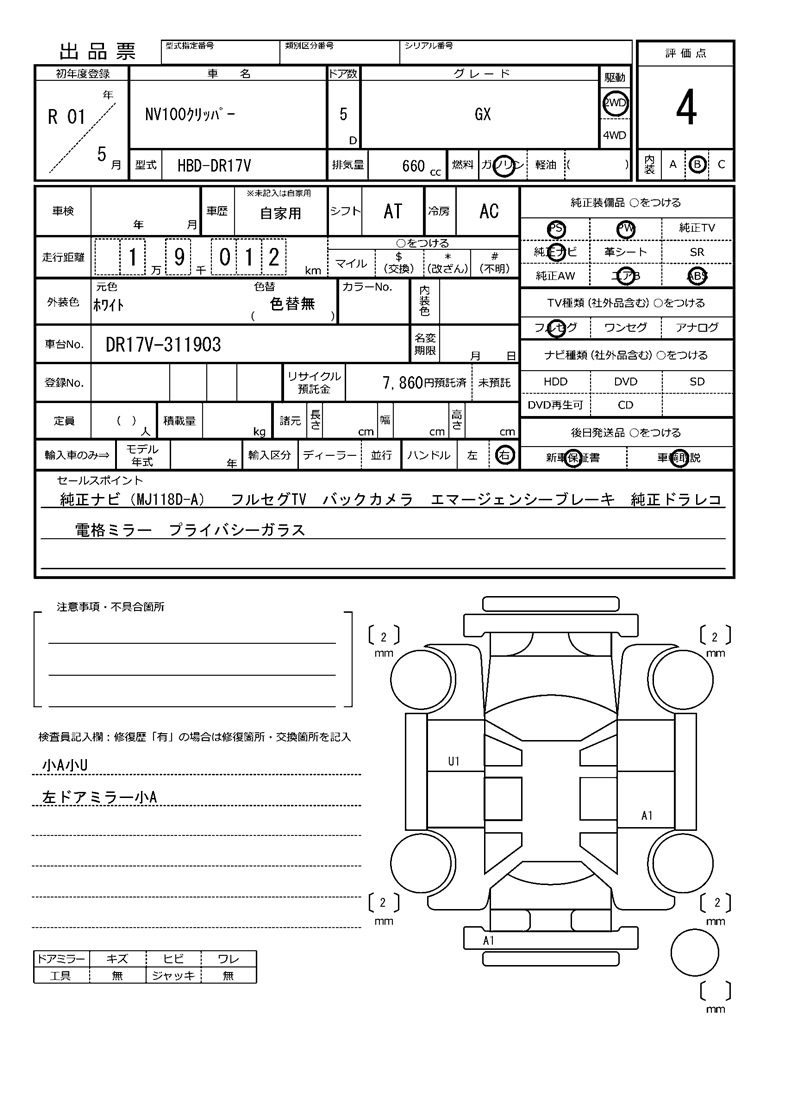 出品票
型式指定番号 類別区分番号 シリアル番号
評価点
初年度登録 車名 ドア数 グレード 駆動
R 01 年
5 月
NV100クリッパー
5 D
GX
2WD
4WD
4
型式 HBD-DR17V 排気量 660 cc 燃料 ガソリン 軽油 ( )
内装 A B C
車検 年 月 車歴 ※未記入は自家用 自家用 シフト AT 冷房 AC
走行距離 1 万 9 千 0 1 2 km
○をつける
マイル $(交換) *(改ざん) #(不明)
外装色 元色 ホワイト 色替 色替無 ( ) カラーNo. 内装色
車台No. DR17V-311903 名変期限 月 日
登録No. リサイクル預託金 7,860円預託済 未預託
定員 ( ) 人 積載量 kg 諸元 長さ cm 幅 cm 高さ cm
輸入車のみ⇒ モデル年式 年 輸入区分 ディーラー 並行 ハンドル 左 右
純正装備品 ○をつける
PS PW 純正TV
純正ナビ 革シート SR
純正AW エアB ABS
TV種類(社外品含む) ○をつける
フルセグ ワンセグ アナログ
ナビ種類(社外品含む) ○をつける
HDD DVD SD
DVD再生可 CD
後日発送品 ○をつける
新車保証書 車輌取説
セールスポイント
純正ナビ(MJ118D-A) フルセグTV バックカメラ エマージェンシーブレーキ 純正ドラレコ
電格ミラー プライバシーガラス
注意事項・不具合箇所
検査員記入欄：修復歴「有」の場合は修復箇所・交換箇所を記入
小A小U
左ドアミラー小A
ドアミラー キズ ヒビ ワレ
工具 無 ジャッキ 無
2 mm
2 mm
U1
A1
2 mm
2 mm
A1
mm